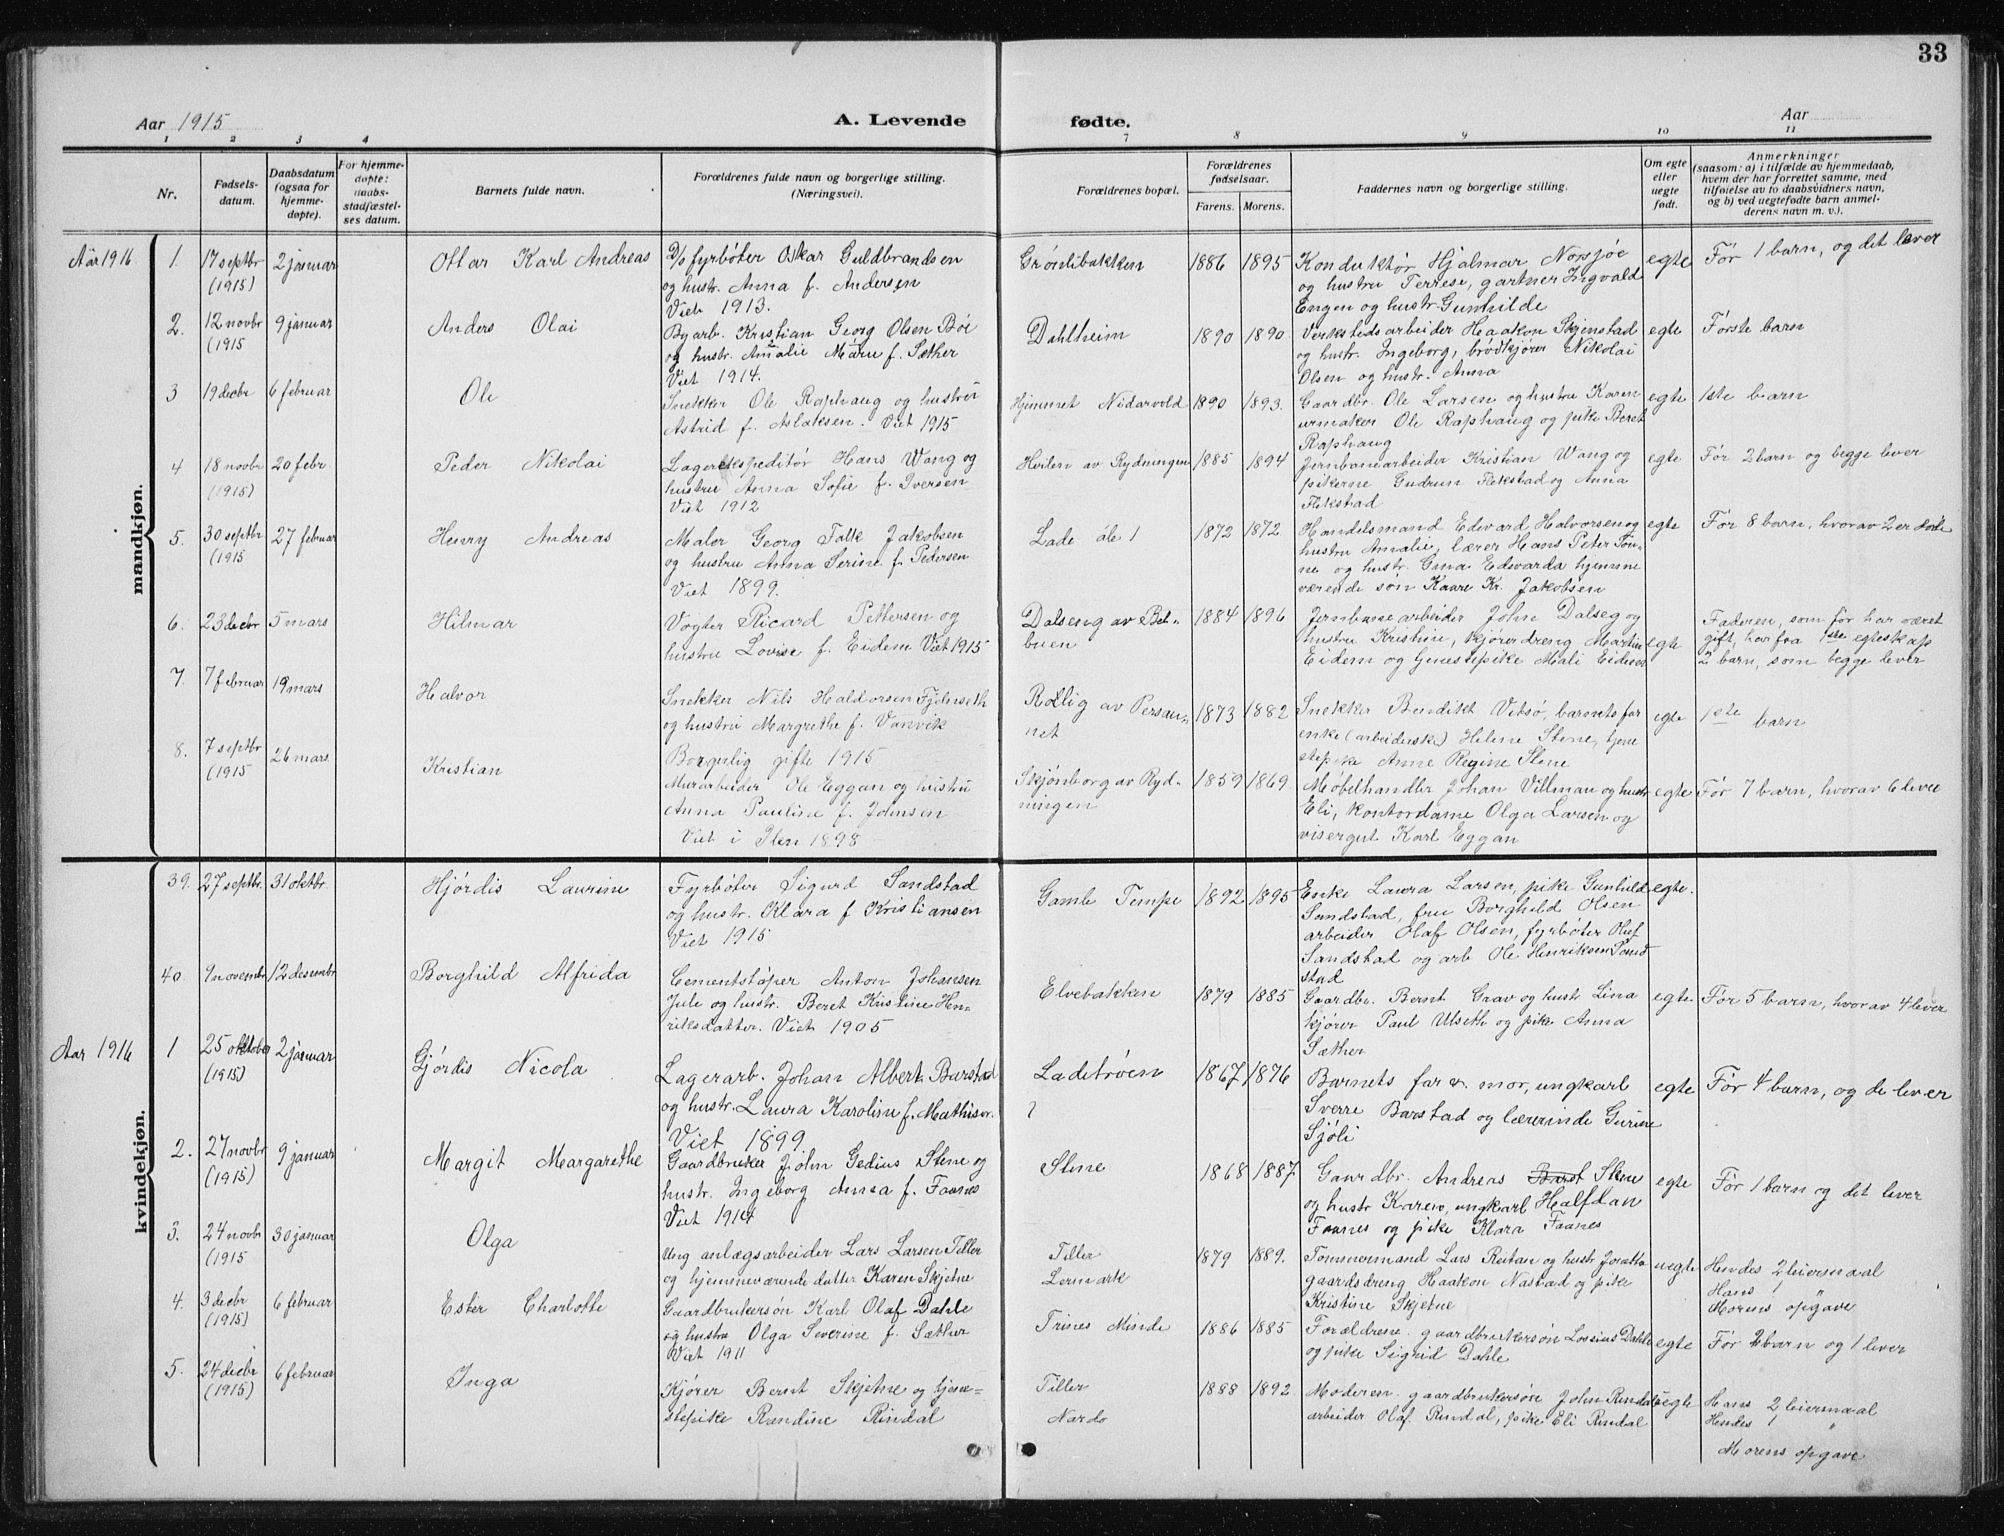 33
Aar 1915
A. Levende fødte.
Aar
1 2 3 4 7 8 9 10 11
Nr.
Fødsels-
datum.
Daabsdatum
(ogsaa for
hjemme-
døpte).
For hjemme-
døpte:
daabs-
stadfæstel-
ses datum.
Barnets fulde navn.
Forældrenes fulde navn og borgerlige stilling.
(Næringsvei).
Forældrenes bopæl.
Forældrenes
fødselsaar.
Farens. Morens.
Faddernes navn og borgerlige stilling.
Om egte
eller
uegte
født.
Anmerkninger
(saasom: a) i tilfælde av hjemmedaab,
hvem der har forrettet samme, med
tilføielse av to daabsvidners navn,
og b) ved uegtefødte barn anmel-
derens navn m. v.).
mandkjøn.
Aar 1916
1. 17 septbr (1915) 2 januar
Ottar Karl Andreas
D/o fyrbøter Oskar Guldbrandsen
og hustr. Anna f. Andersen
Viet 1913.
Grønlibakken 1886 1895
Konduktør Hjalmar Norsjøe
og hustru Terrese, gartner Ingvald
Engen og hustr. Gunhilde
egte
Før 1 barn, og det lever
2. 12 novbr (1915 9 januar
Anders Olai
Byarb. Kristian Georg Olsen Bøe
og hustr. Amalie Marie f. Sæther
Viet 1914.
Dahlheim 1890 1890.
Verkstedsarbeider Haakon Skjenstad
og hustr. Ingeborg, brødkjører Nikolai
Olsen og hustr. Anna
egte
Første barn
3 19 decbr 6 februar
Ole
Snekker Ole Raphaug og hustru
Astrid f. Aslaksen. Viet 1915
Hjemmet Nidarvold 1890 1893.
Gaardbr. Ole Larsen og hustru Karen
urmaker Ole Raphaug og pike Beret
Raphaug
egte
1ste barn
4 18 novbr (1915) 20 febr.
Peder Nikolai
Lagerekspeditør Hans Wang og
hustru Anna Sofie f. Iversen
Viet 1912
Hvilen av Rydningen 1885 1894
Jernbanearbeider Kristian Wang og
pikerne Gudrun Flekstad og Anna
Flekstad
egte
Før 2 barn og begge lever
5. 30 septbr (1915 27 februar
Henry Andreas
Maler Georg Falk Jakobsen
og hustru Anna Serine f. Pedersen
Viet 1899.
Lade åle 1 1872 1872
Handelsmand Edvard Halvorsen og
hustru Amalie, lærer Hans Peter Tøn-
ne og hustr. Gina Edvarda hjemme
værende søn Kaare Kr. Jakobsen
egte
Før 8 barn, hvorav 2 er døde
6. 23 decbr 5 mars
Hilmar
Vogter Ricard Pettersen og
hustru Lovise f. Eidem Viet 1915
Dalseng av Bel-
buen 1884 1896
Jernbanearbeider John Dalseg og
hustru Kristine, kjøredreng Martin
Eidem og tjenestepike Mali Eidem
egte
Faderen, som før har været
gift, har faa 1ste egteskap
2 barn, som begge lever
7. 7 februar 19 mars
Halvor
Snekker Nils Haldorsen Fjelnseth
og hustru Margrethe f. Vanvik
Borgerlig gifte 1915
Rolig av Persau-
net 1873 1882
Snekker Bendikt Vitsø, barnets far
enke (arbeiderske) Helene Stene, tjene
stepike Anne Regine Stene
egte
1ste barn
8. 7 septbr (1915 26 mars
Kristian
Murarbeider Ole Eggan og hustru
Anna Pauline f. Johnsen
Viet i Ilen 1898
Skjønborg av Ryd-
ningen 1859 1869.
Møbelhandler Johan Villman og hustr
Eli, kontordame Olga Larsen og
visergut Karl Eggan
egte
Før 7 barn, hvorav 6 lever
kvindekjøn.
39. 27 septbr. 31 oktbr.
Hjørdis Laurine
Fyrbøter Sigurd Sandstad
og hustr. Klara f Kristiansen
Viet 1915
Gamle Tempe 1892 1895
Enke Laura Larsen, pike Gunhild
Sandstad, fru Borghild Olsen
arbeider Olaf Olsen, fyrbøter Oluf
Sandstad og arb Ole Henriksen Sand
stad
egte.
40. 9 novembr 12 desembr
Borghild Alfrida
Cementstøper Anton Johansen
Jule og hustr. Beret Kristine Hen-
riksdatter. Viet 1905
Elvebakken 1879 1885
Gaardbr. Bernt Grav og hustr Lina
kjører Paul Ulseth og pike Anna
Sæther
egte
Før 5 barn, hvorav 4 lever
Aar 1916
1 25 oktober (1915) 2 januar
Gjørdis Nicola
Lagerarb. Johan Albert Barstad
og hustr. Laura Karoline f. Mathisen
Viet 1899
Ladetrøen
1
1867 1876
Barnets far & mor, ungkarl
Sverre Barstad og lærerinde Gurine
Sjøli
egte
Før 4 barn, og de lever
2. 27 novbr (1915) 9 januar
Margit Margarethe
Gaardbruker John Gedius Stene og
hustr. Ingeborg Anna f. Faanes
Viet 1914
Stene 1868 1887
Gaardbr. Andreas Stene
og hustr Karen, ungkarl Halfdan
Faanes og pike Klara Faanes
egte
Før 1 barn og det lever
3. 24 novbr (1915 30 januar
Olga
Ung anlægsarbeider Lars Larsen Tiller
og hjemmeværende datter Karen Skjetne
Tiller
Lermark
1879 1889.
Tømmermand Lars Reitan og hustr Joratha
gaardsdreng Haakon Nastad og pike
Kristine Skjetne
uegte
Hendes 2 leiermaal
Hans 1 "
Morens opgave
4. 3 decbr (1915) 6 februar
Ester Charlotte
Gaardbrukersøn Karl Olaf Dahle
og hustru Olga Severine f. Sæther
Viet 1911
Trines Minde 1886 1885
Forældrene. gaardbrukersøn Lossius Dahle
og pike Sigrid Dahle
egte
Før 2 barn og 1 lever
5. 24 decbr (1915) 6 februar
Inga
Kjører Bernt Skjetne og tjene-
stepike Randine Rindal
Tiller
Nardo
1888 1892.
Moderen. gaardbrukersøn John Rindal
arbeider Olaf Rindal, pike Eli Rindal
uegte
Hans 2 leiermaal
Hendes 1 "
Morens opgave